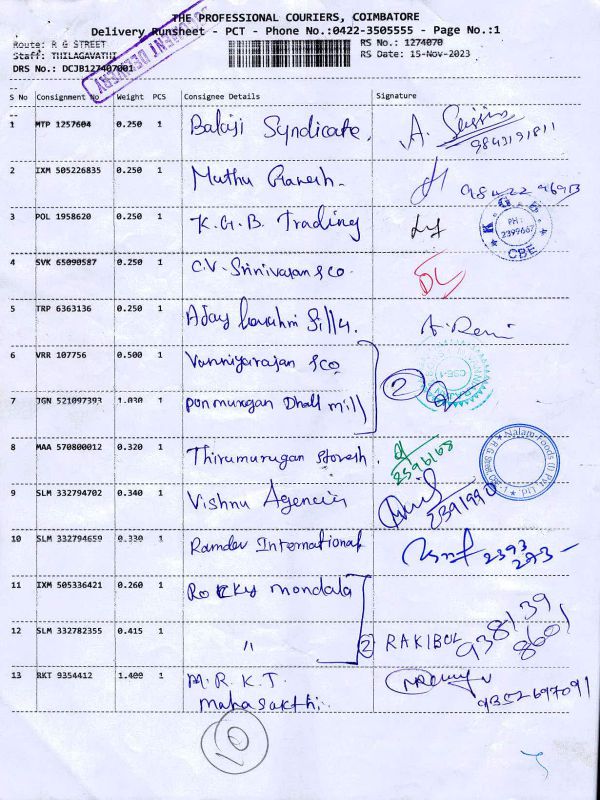 THE PROFESSIONAL COURIERS, COIMBATORE
Delivery Runsheet - PCT - Phone No.:0422-3505555 - Page No.:1
Route: R G STREET RS No.: 1274070
Staff: THILAGAVATHI RS Date: 15-Nov-2023
DRS No.: DCJB127407001
DELIVERY
S No Consignment No Weight PCS Consignee Details Signature
1 MTP 1257604 0.250 1 Balaji Syndicate. A. 9843191811
2 IXM 505226835 0.250 1 Muthu Ganesh.
3 POL 1958620 0.250 1 K.G.B. Trading
K.G.B. PH: 2399667 CBE
4 SVK 65090587 0.250 1 C.V. Srinivasan & co.
5 TRP 6363136 0.250 1 Ajay
6 VRR 107756 0.500 1 Vanniyarajan & co
2
7 JGN 521097393 1.030 1 Ponmurugan Dhall mill
8 MAA 570800012 0.320 1 Thirumurugan 2396168
Nalam Foods (I) Pvt. Ltd.
9 SLM 332794702 0.340 1 Vishnu Agencies 2391990
10 SLM 332794659 0.330 1 Ramdev International 2393
293-
11 IXM 505336421 0.260 1 Rocky mondala
12 SLM 332782355 0.415 1 " 2 RAKIBUL 938139
8601
13 RKT 9354412 1.400 1 M.R.K.T.
mahasakthi. 9352697091
10